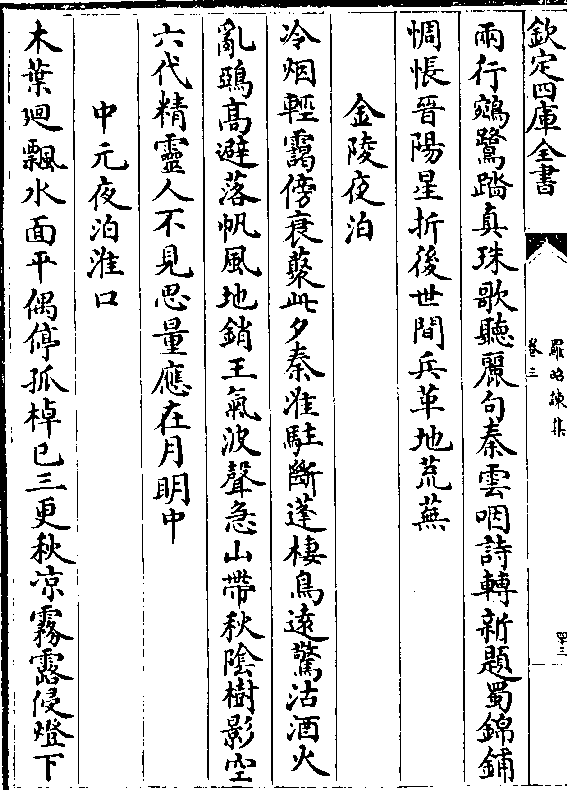 欽定四庫全書
羅昭諫集
卷三
兩行鵷鷺踏真珠歌聽麗句秦雲咽詩轉新題蜀錦鋪
惆悵晉陽星折後世間兵革地荒蕪
金陵夜泊
冷烟輕靄傍衰藂此夕秦淮駐斷蓬棲鳥遠驚沽酒火
亂鵶髙避落帆風地銷王氣波聲急山帶秋陰樹影空
六代精靈人不見思量應在月明中
中元夜泊淮口
木葉廻飄水面平偶停孤棹已三更秋凉霧露侵燈下